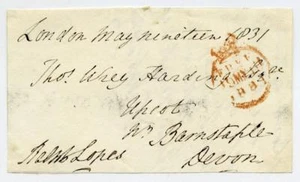 London May nineteen 1831
Thos Wrey Harding
Upcot
Nr Barnstaple
Devon
Lopes